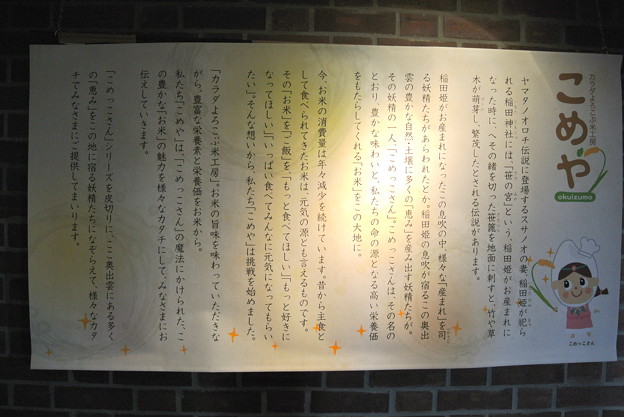 カラダよろこぶ米工房
こめや
okuizumo
こめっこさん
ヤマタノオロチ伝説に登場するスサノオの妻、稲田姫が祀ら
れる稲田神社には、「笹の宮」という、稲田姫がお産まれに
なった時に、へその緒を切った笹箆を地面に刺すと、竹や草
木が萌芽し、繁茂したとされる伝説があります。
稲田姫がお産まれになったこの息吹の中、様々な「産まれ」を司
る妖精たちがあらわれたとか。稲田姫の息吹が宿るこの奥出
雲の豊かな自然・土壌に多くの「恵み」を産み出す妖精たちが。
その妖精の一人、「こめっこさん」。こめっこさんは、その名の
とおり、豊かな味わいと、私たちの命の源となる高い栄養価
をもたらしてくれる「お米」をこの大地に。
今、お米の消費量は年々減少を続けています。昔から主食と
して食べられてきたお米は、元気の源とも言えるものです。
その「お米」を「ご飯」を、「もっと食べてほしい」「もっと好きに
なってほしい」「いっぱい食べてみんなに元気になってもらい
たい」そんな想いから、私たち「こめや」は挑戦を始めました。
「カラダよろこぶ米工房」。お米の旨味を味わっていただきな
がら、豊富な栄養素と栄養価をお米から。
私たち「こめや」は、「こめっこさん」の魔法にかけられた、こ
の豊かな「お米」の魅力を様々なカタチにして、みなさまにお
伝えしていきます。
「こめっこさん」シリーズを皮切りに、ここ奥出雲にある多く
の「恵み」をこの地に宿る妖精たちになぞらえて、様々なカタ
チでみなさまにご提供してまいります。